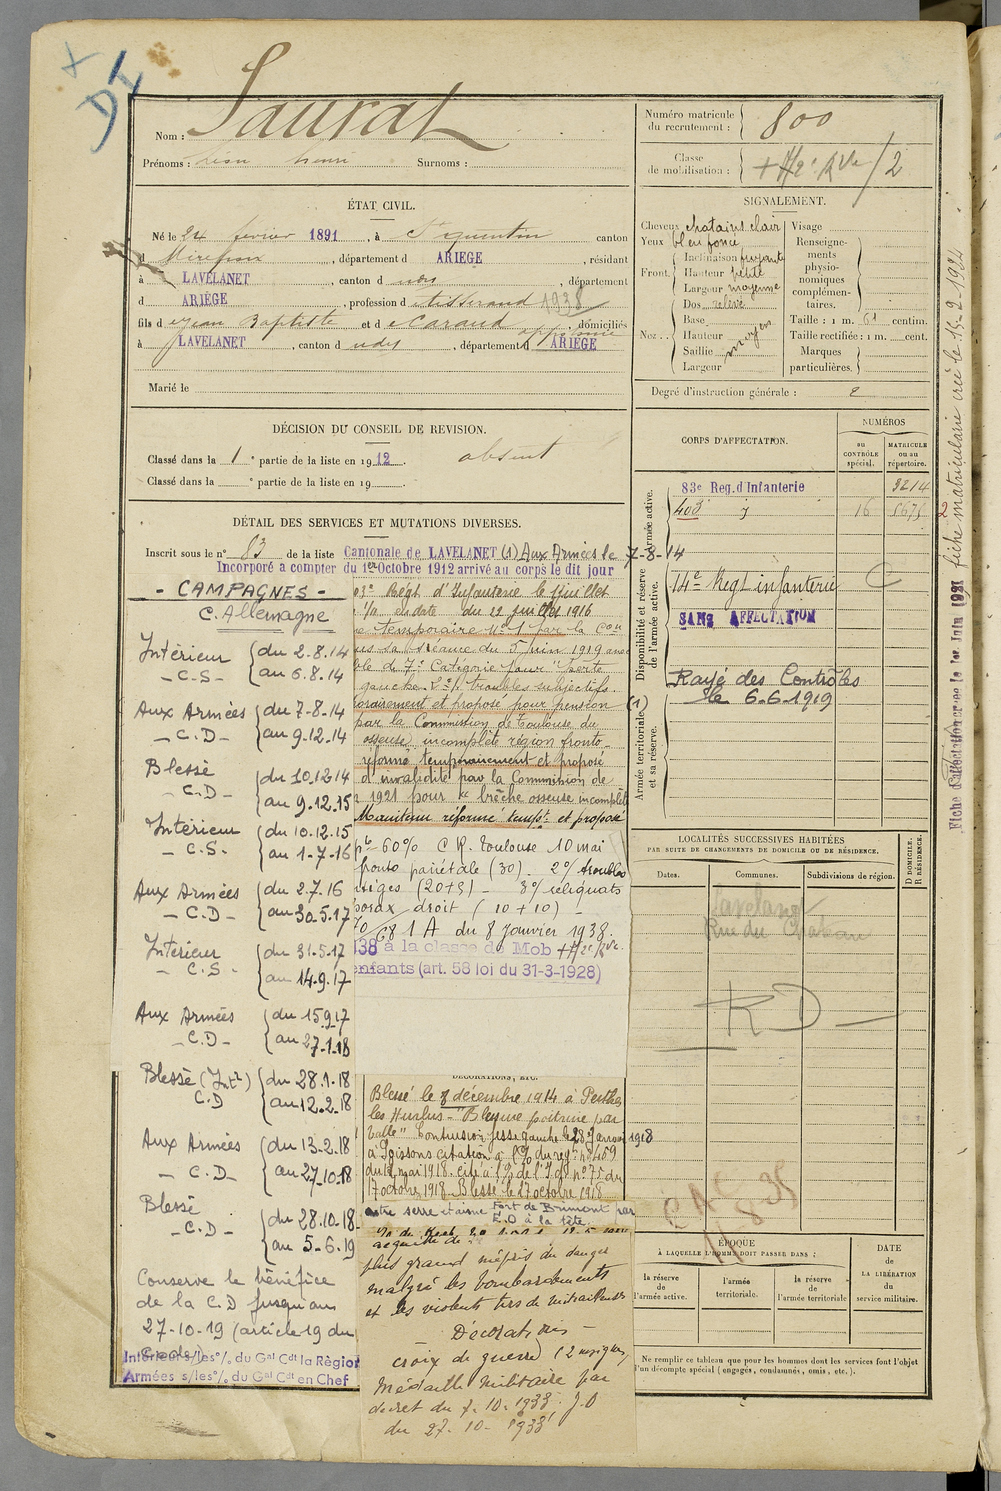 DI
Nom : Saurat
Prénoms : Léon Henri Surnoms :
ÉTAT CIVIL.
Né le 24 février 1891, à St Quentin canton
d Mirepoix, département d ARIEGE, résidant
à LAVELANET, canton d udes, département
d ARIÈGE, profession d Tisserand 1938
fils d Jean Baptiste et d domiciliés
à LAVELANET, canton d udes, département d ARIÈGE
Marié le
DÉCISION DU CONSEIL DE REVISION.
Classé dans la 1e partie de la liste en 1912. absent
Classé dans la e partie de la liste en 19
DÉTAIL DES SERVICES ET MUTATIONS DIVERSES.
Inscrit sous le n° 83 de la liste Cantonale de LAVELANET (1) Aux Armées le 7-8-14
Incorporé a compter du 1er Octobre 1912 arrivé au corps le dit jour
- CAMPAGNES -
C. Allemagne
Intérieur - C.S - { du 2.8.14
au 6.8.14
Aux Armées - C.D - { du 7-8-14
au 9.12.14
Blessé - C.D - { du 10.12.14
au 9.12.15
Intérieur - C.S. - { du 10.12.15
au 1-7-16
Aux Armées - C.D - { du 2.7.16
au 30.5.17
Intérieur - C.S - { du 31.5.17
au 14.9.17
Aux Armées - C.D - { du 15.9.17
au 27.1.18
Blessé (Int) C.D { du 28.1.18
au 12.2.18
Aux Armées - C.D - { du 13-2.18
au 27-10.18
Blessé - C.D - { du 28.10.18
au 5-6.19
Conserve le bénéfice
de la C.D jusqu'au
27-10-19 (article 19 du
Code)
Intérieur s/les °/. du Gal Cdt la Région
Armées s/les °/. du Gal Cdt en Chef
Régt d'Infanterie le 11 juillet
en date du 22 juillet 1916
temporaire N° 1 par la Con
sa séance du 5 Juin 1919 avec
ble de 7e Catégorie pour "perte
gauche. 2°/. troubles subjectifs.
et proposé pour pension (1)
par la Commission de Toulouse du
osseuse incomplète région fronto
réformé temporairement et proposé
d'invalidité par la Commission de
1921 pour brèche osseuse incomplète
Maintenu réformé tempt. et proposé
60% C R. Toulouse 10 mai
fronto pariétale (30). 2°/ troubles
(20+5) - 3°/ reliquats
thorax droit (10+10) -
68 1 A du 8 Janvier 1938.
138 à la classe de Mob
enfants (art. 58 loi du 31-3-1928)
DÉCORATIONS, ETC.
Blessé le 8 décembre 1914 à Perthes
les Hurlus - "Blessure poitrine par
balle" Contusion fesse gauche le 28 Janvier 1918
à Soissons citation à l'O/ du régt n° 409
du 12 mai 1918. Cité à l'O/ de l'I.D. n° 75 du
17 octobre 1918 Blessé le 27 octobre 1918
Fort de Brimont par
E.O à la tête.
plus grand mépris du danger
malgré les bombardements
et les violents tirs de mitrailleuses
- Décorations -
croix de guerre (2
Médaille Militaire par
décret du 7. 10. 1933. J.O
du 27. 10. 1933
Numéro matricule du recrutement : 800
Classe de mobilisation : /2
SIGNALEMENT.
Cheveux chatains clair
Yeux bleu foncé
Front. Inclinaison fuyante
Hauteur petite
Largeur moyenne
Nez.. Dos relevé
Base
Hauteur moyen
Saillie
Largeur
Visage
Renseignements physionomiques complémentaires.
Taille : 1 m. 61 centim.
Taille rectifiée : 1 m. cent.
Marques particulières.
Degré d'instruction générale : 2
CORPS D'AFFECTATION.
NUMÉROS
au CONTRÔLE spécial.
MATRICULE ou au répertoire.
Armée active.
83e Reg. d'Infanterie 3214
408 16 5675
Disponibilité et réserve de l'armée active.
14e Regt infanterie
SANS AFFECTATION
Rayé des Contrôles
le 6-6-1919
Armée territoriale et sa réserve.
LOCALITÉS SUCCESSIVES HABITÉES
PAR SUITE DE CHANGEMENTS DE DOMICILE OU DE RÉSIDENCE.
Dates. Communes. Subdivisions de région. D DOMICILE. R RÉSIDENCE.
Lavelanet
Rue du Château
RD
ÉPOQUE
À LAQUELLE L'HOMME DOIT PASSER DANS :
la réserve de l'armée active.
l'armée territoriale.
la réserve de l'armée territoriale
DATE de LA LIBÉRATION du service militaire.
Ne remplir ce tableau que pour les hommes dont les services font l'objet
d'un décompte spécial (engagés, condamnés, omis, etc.).
fiche matriculaire créée le 15-2-1924